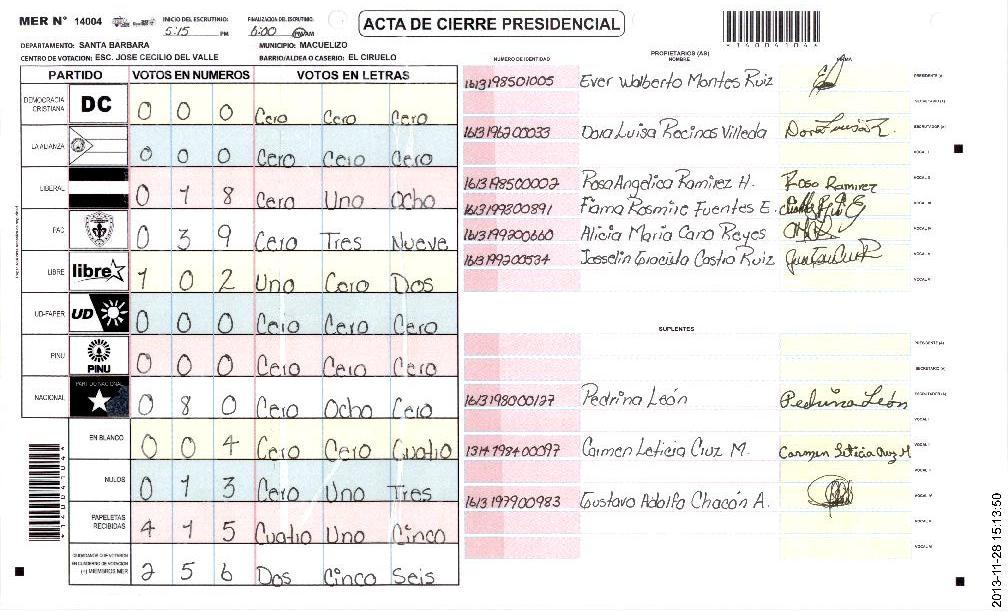 MER N° 14004 INICIO DEL ESCRUTINIO: 5:15 PM FINALIZACION DEL ESCRUTINIO: 6:00 PM/AM ACTA DE CIERRE PRESIDENCIAL
DEPARTAMENTO: SANTA BARBARA MUNICIPIO: MACUELIZO
CENTRO DE VOTACION: ESC. JOSE CECILIO DEL VALLE BARRIO/ALDEA O CASERIO: EL CIRUELO
PARTIDO VOTOS EN NUMEROS VOTOS EN LETRAS
DEMOCRACIA CRISTIANA DC 0 0 0 Cero Cero Cero
LA ALIANZA 0 0 0 Cero Cero Cero
LIBERAL 0 1 8 Cero Uno Ocho
PAC 0 3 9 Cero Tres Nueve
LIBRE libre 1 0 2 Uno Cero Dos
UD-FAPER UD 0 0 0 Cero Cero Cero
PINU PINU 0 0 0 Cero Cero Cero
NACIONAL PARTIDO NACIONAL 0 8 0 Cero Ocho Cero
EN BLANCO 0 0 4 Cero Cero Cuatro
NULOS 0 1 3 Cero Uno Tres
PAPELETAS RECIBIDAS 4 1 5 Cuatro Uno Cinco
CIUDADANOS QUE VOTARON EN CUADERNO DE VOTACION (+) MIEMBROS MER 2 5 6 Dos Cinco Seis
PROPIETARIOS (AS)
NUMERO DE IDENTIDAD NOMBRE FIRMA
1613198501005 Ever Walberto Montes Ruiz PRESIDENTE (A)
SECRETARIO (A)
1613196200033 Dora Luisa Recinos Villeda ESCRUTADOR (A)
VOCAL I
1613198500002 Rosa Angelica Ramirez H. Rosa Ramirez VOCAL II
1613199800891 Fiama Rosmire Fuentes E. VOCAL III
1613199200660 Alicia Maria Cano Reyes VOCAL IV
1613199200534 Josselin Graciela Castro Ruiz VOCAL V
VOCAL VI
SUPLENTES
PRESIDENTE (A)
SECRETARIO (A)
1613198000127 Pedrina León Pedrina León ESCRUTADOR (A)
VOCAL I
1314198400097 Carmen Leticia Cruz M. Carmen Leticia Cruz M VOCAL II
VOCAL III
1613197900983 Gustavo Adolfo Chacón A. VOCAL IV
VOCAL V
VOCAL VI
2013-11-28 15:13:50